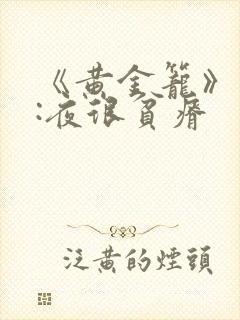 《黄金籠》
:夜很貧瘠
泛黄的煙頭